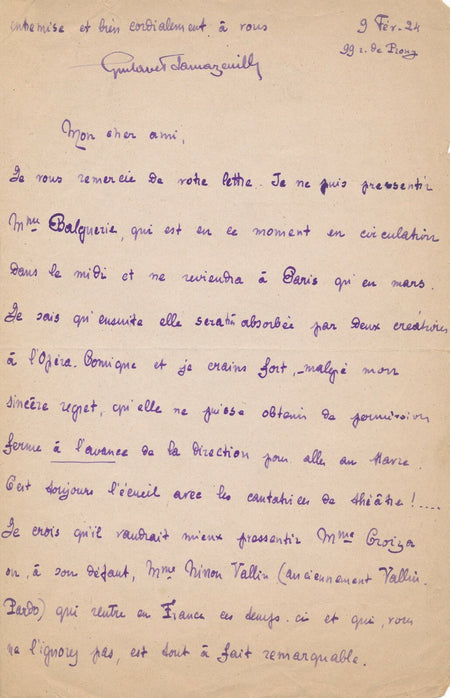 entremise et bien cordialement à vous
9 Fév. 24
99 r. de Prony
Gustave Samazeuilh
Mon cher ami,
Je vous remercie de votre lettre. Je ne puis pressentir
Mme Balguerie, qui est en ce moment en circulation
dans le midi et ne reviendra à Paris qu'en mars.
Je sais qu'ensuite elle sera absorbée par deux créations
à l'Opéra. Comique et je crains fort, malgré mon
sincère regret, qu'elle ne puisse obtenir de permission
ferme à l'avance de la direction pour aller au Havre.
C'est toujours l'écueil avec les cantatrices de théâtre !....
Je crois qu'il vaudrait mieux pressentir Mme Croiza
ou, à son défaut, Mme Ninon Vallin (anciennement Vallin.
Pardo) qui rentre en France ces temps. ci et qui, vous
ne l'ignorez pas, est tout à fait remarquable.